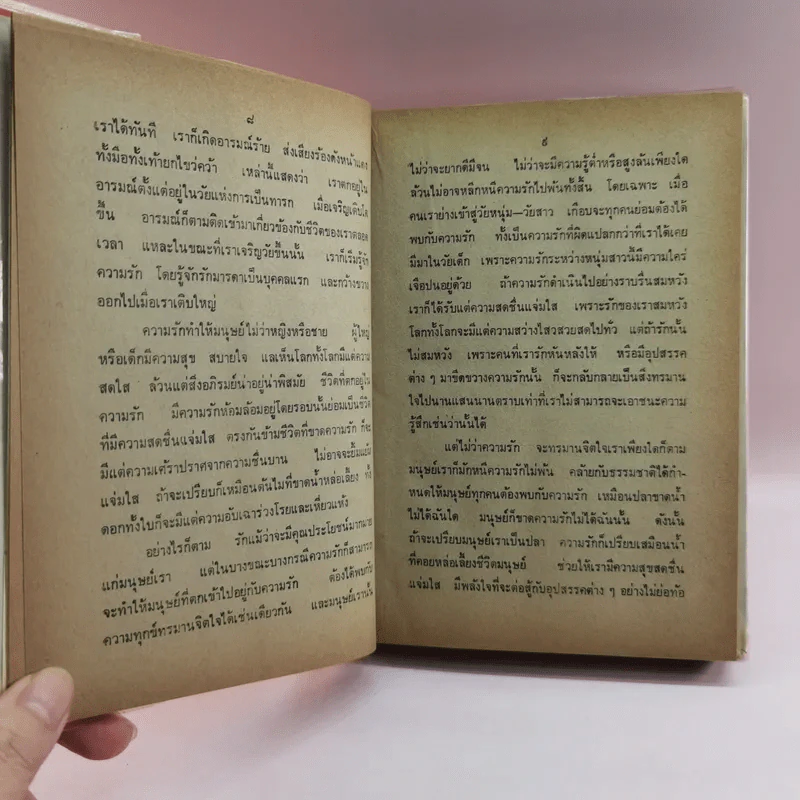 ๘
เราได้ทันที เราก็เกิดอารมณ์ร้าย ส่งเสียงร้องดังหน้าแดง
ทั้งมือทั้งเท้ายกไขว่คว้า เหล่านี้แสดงว่า เราตกอยู่ใน
อารมณ์ตั้งแต่อยู่ในวัยแห่งการเป็นทารก เมื่อเจริญเติบโต
ขึ้น อารมณ์ก็ตามติดเข้ามาเกี่ยวข้องกับชีวิตของเราตลอด
เวลา และในขณะที่เราเจริญวัยขึ้นนั้น เราก็เริ่มรู้จัก
ความรัก โดยรู้จักรักมารดาเป็นบุคคลแรก และกว้างขวาง
ออกไปเมื่อเราเติบใหญ่
ความรักทำให้มนุษย์ไม่ว่าหญิงหรือชาย ผู้ใหญ่
หรือเด็กมีความสุข สบายใจ แลเห็นโลกทั้งโลกมีแต่ความ
สดใส ล้วนแต่สิ่งอภิรมย์น่าอยู่น่าพิสมัย ชีวิตที่ตกอยู่ใน
ความรัก มีความรักห้อมล้อมอยู่โดยรอบนั้นย่อมเป็นชีวิต
ที่มีความสดชื่นแจ่มใส ตรงกันข้ามชีวิตที่ขาดความรัก ก็จะ
มีแต่ความเศร้าปราศจากความชื่นบาน ไม่อาจจะยิ้มแย้ม
แจ่มใส ถ้าจะเปรียบก็เหมือนต้นไม้ที่ขาดน้ำหล่อเลี้ยง ทั้ง
ดอกทั้งใบก็จะมีแต่ความอับเฉาร่วงโรยและเหี่ยวแห้ง
อย่างไรก็ตาม รักแม้ว่าจะมีคุณประโยชน์มากมาย
แก่มนุษย์เรา แต่ในบางขณะบางกรณีความรักก็สามารถ
จะทำให้มนุษย์ที่ตกเข้าไปอยู่กับความรัก ต้องได้พบกับ
ความทุกข์ทรมานจิตใจได้เช่นเดียวกัน และมนุษย์เรานั้น
๙
ไม่ว่าจะยากดีมีจน ไม่ว่าจะมีความรู้ต่ำหรือสูงล้นเพียงใด
ล้วนไม่อาจหลีกหนีความรักไปพ้นทั้งสิ้น โดยเฉพาะ เมื่อ
คนเราย่างเข้าสู่วัยหนุ่ม—วัยสาว เกือบจะทุกคนย่อมต้องได้
พบกับความรัก ทั้งเป็นความรักที่ผิดแปลกกว่าที่เราได้เคย
มีมาในวัยเด็ก เพราะความรักระหว่างหนุ่มสาวนี้มีความใคร่
เจือปนอยู่ด้วย ถ้าความรักดำเนินไปอย่างราบรื่นสมหวัง
เราก็ได้รับแต่ความสดชื่นแจ่มใส เพราะรักของเราสมหวัง
โลกทั้งโลกจะมีแต่ความสว่างไสวสวยสดไปทั่ว แต่ถ้ารักนั้น
ไม่สมหวัง เพราะคนที่เรารักหันหลังให้ หรือมีอุปสรรค
ต่าง ๆ มาขีดขวางความรักนั้น ก็จะกลับกลายเป็นสิ่งทรมาน
ใจไปนานแสนนานตราบเท่าที่เราไม่สามารถจะเอาชนะความ
รู้สึกเช่นว่านั้นได้
แต่ไม่ว่าความรัก จะทรมานจิตใจเราเพียงใดก็ตาม
มนุษย์เราก็มักหนีความรักไม่พ้น คล้ายกับธรรมชาติได้กำ-
หนดให้มนุษย์ทุกคนต้องพบกับความรัก เหมือนปลาขาดน้ำ
ไม่ได้ฉันใด มนุษย์ก็ขาดความรักไม่ได้ฉันนั้น ดังนั้น
ถ้าจะเปรียบมนุษย์เราเป็นปลา ความรักก็เปรียบเสมือนน้ำ
ที่คอยหล่อเลี้ยงชีวิตมนุษย์ ช่วยให้เรามีความสุขสดชื่น
แจ่มใส มีพลังใจที่จะต่อสู้กับอุปสรรคต่าง ๆ อย่างไม่ย่อท้อ